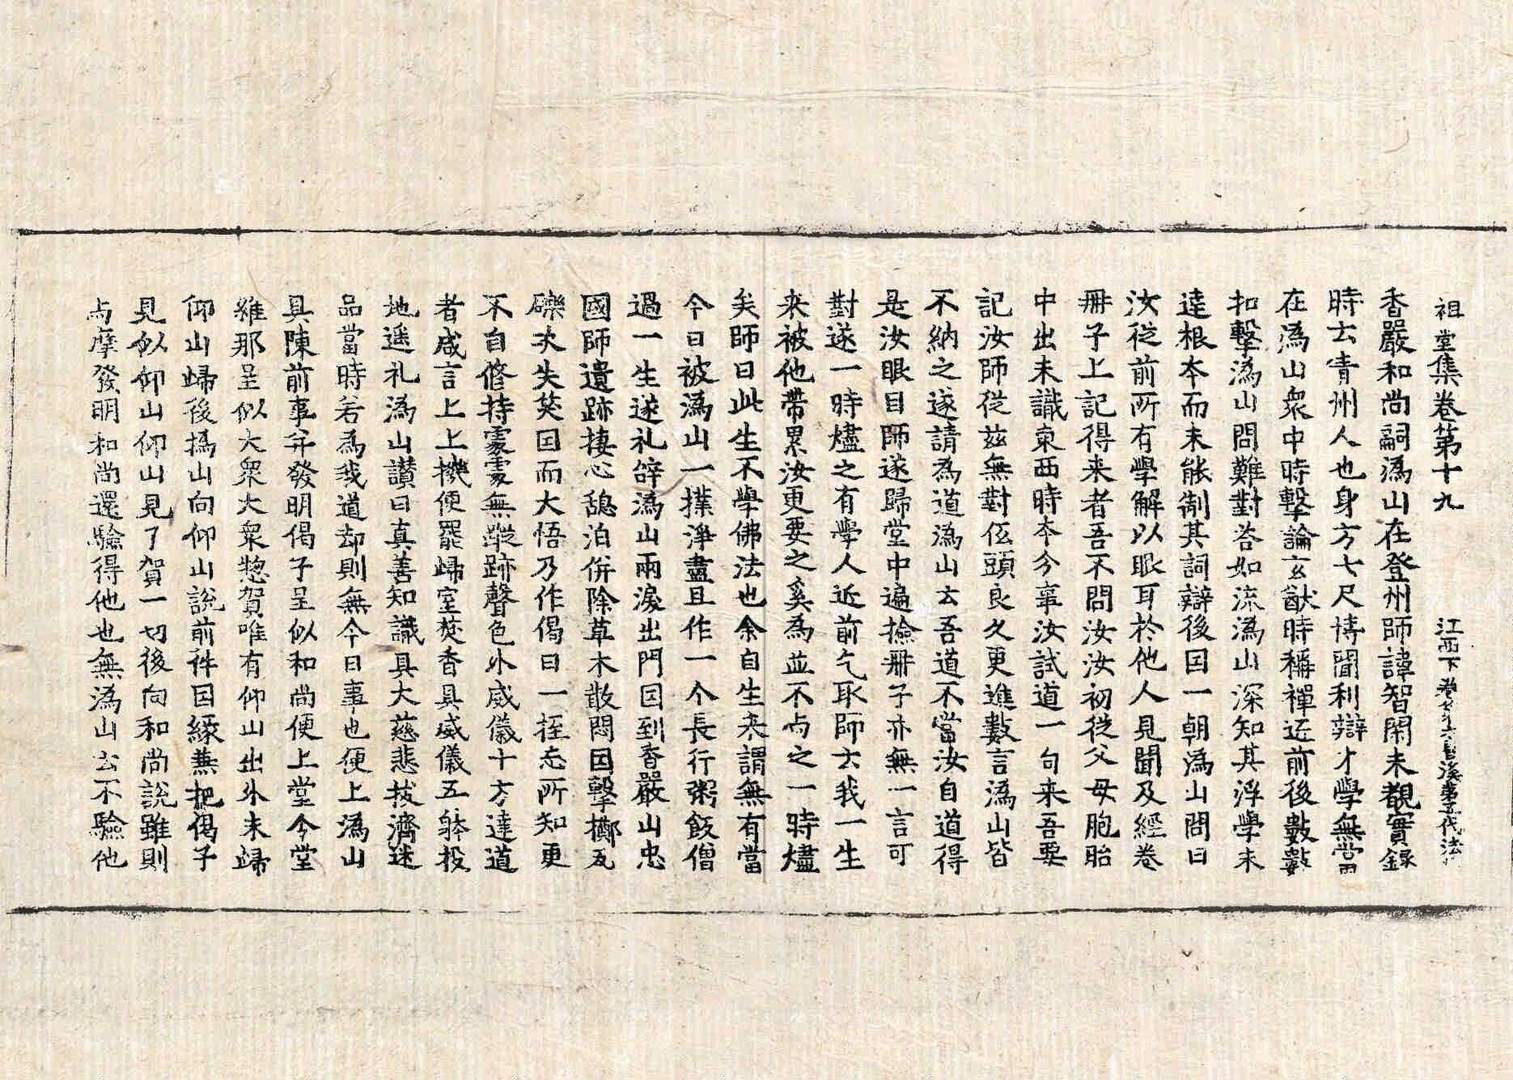 祖堂集卷第十九 江西下卷第六曹溪第五代法孫
香嚴和尚嗣溈山在登州師諱智閑未覩實錄
時云青州人也身方七尺博聞利辯才學無當
在溈山衆中時擊論玄猷時稱禪匠前後數數
扣擊溈山問難對荅如流溈山深知其浮學未
達根夲而未能制其詞辯後因一朝溈山問曰
汝從前所有學解以眼耳於他人見聞及經卷
冊子上記得来者吾不問汝汝初從父母胞胎
中出未識東西時夲分事汝試道一句来吾要
記汝師從茲無對伍頭良久更進數言溈山皆
不納之遂請為道溈山云吾道不當汝自道得
是汝眼目師遂歸堂中遍撿冊子亦無一言可
對遂一時燼之有學人近前乞取師云我一生
来被他帶累汝更要之奚為並不与之一時燼
矣師曰此生不學佛法也余自生来謂無有當
今日被溈山一撲淨盡且作一个長行粥飯僧
過一生遂礼辞溈山兩淚出門因到香嚴山忠
國師遺跡棲心憩泊併除草木散悶因擊擲瓦
礫次失笑因而大悟乃作偈曰一挃忘所知更
不自修持䖏䖏無蹤跡聲色外威儀十方達道
者咸言上上機便罷歸室焚香具威儀五躰投
地遥礼溈山讃曰真善知識具大慈悲拔濟迷
品當時若為我道却則無今日事也便上溈山
具陳前事并發明偈子呈似和尚便上堂令堂
維那呈似大衆大衆惣賀唯有仰山出外未歸
仰山歸後溈山向仰山說前件因緣兼把偈子
見似仰山仰山見了賀一切後向和尚說雖則
与摩發明和尚還驗得他也無溈山云不驗他